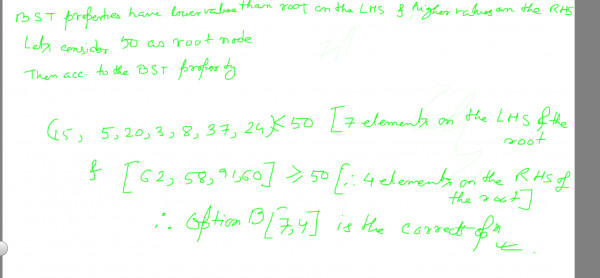 BST properties have lower values than root on the LHS & higher values on the RHS
Lets consider 50 as root node
Then acc. to the BST property
(15, 5, 20, 3, 8, 37, 24) < 50 [7 elements on the LHS of the
root
& [62, 58, 91, 60] ≥ 50 [∵ 4 elements on the RHS of
the root]
∴ Option B [7,4] is the correct opn